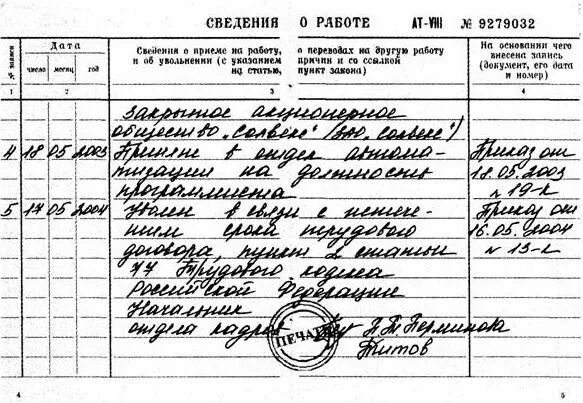 СВЕДЕНИЯ О РАБОТЕ АТ-VIII № 9279032
№ записи
Дата
число месяц год
Сведения о приеме на работу, о переводах на другую работу
и об увольнении (с указанием причин и со ссылкой
на статью, пункт закона)
На основании чего
внесена запись
(документ, его дата
и номер)
1 2 3 4
Закрытое акционерное
общество "Солвекс" (ЗАО "Солвекс")
4 18 05 2003 Принят в отдел автома- Приказ от
тизации на должность 18.05.2003
программиста № 19-к
5 17 05 2004 Уволен в связи с истече- Приказ от
нием срока трудового 16.05.2004
договора, пункт 2 статьи № 13-к
77 Трудового кодекса
Российской Федерации
Начальник
отдела кадров П.Т. Перминова
ПЕЧАТЬ
Титов
4 5